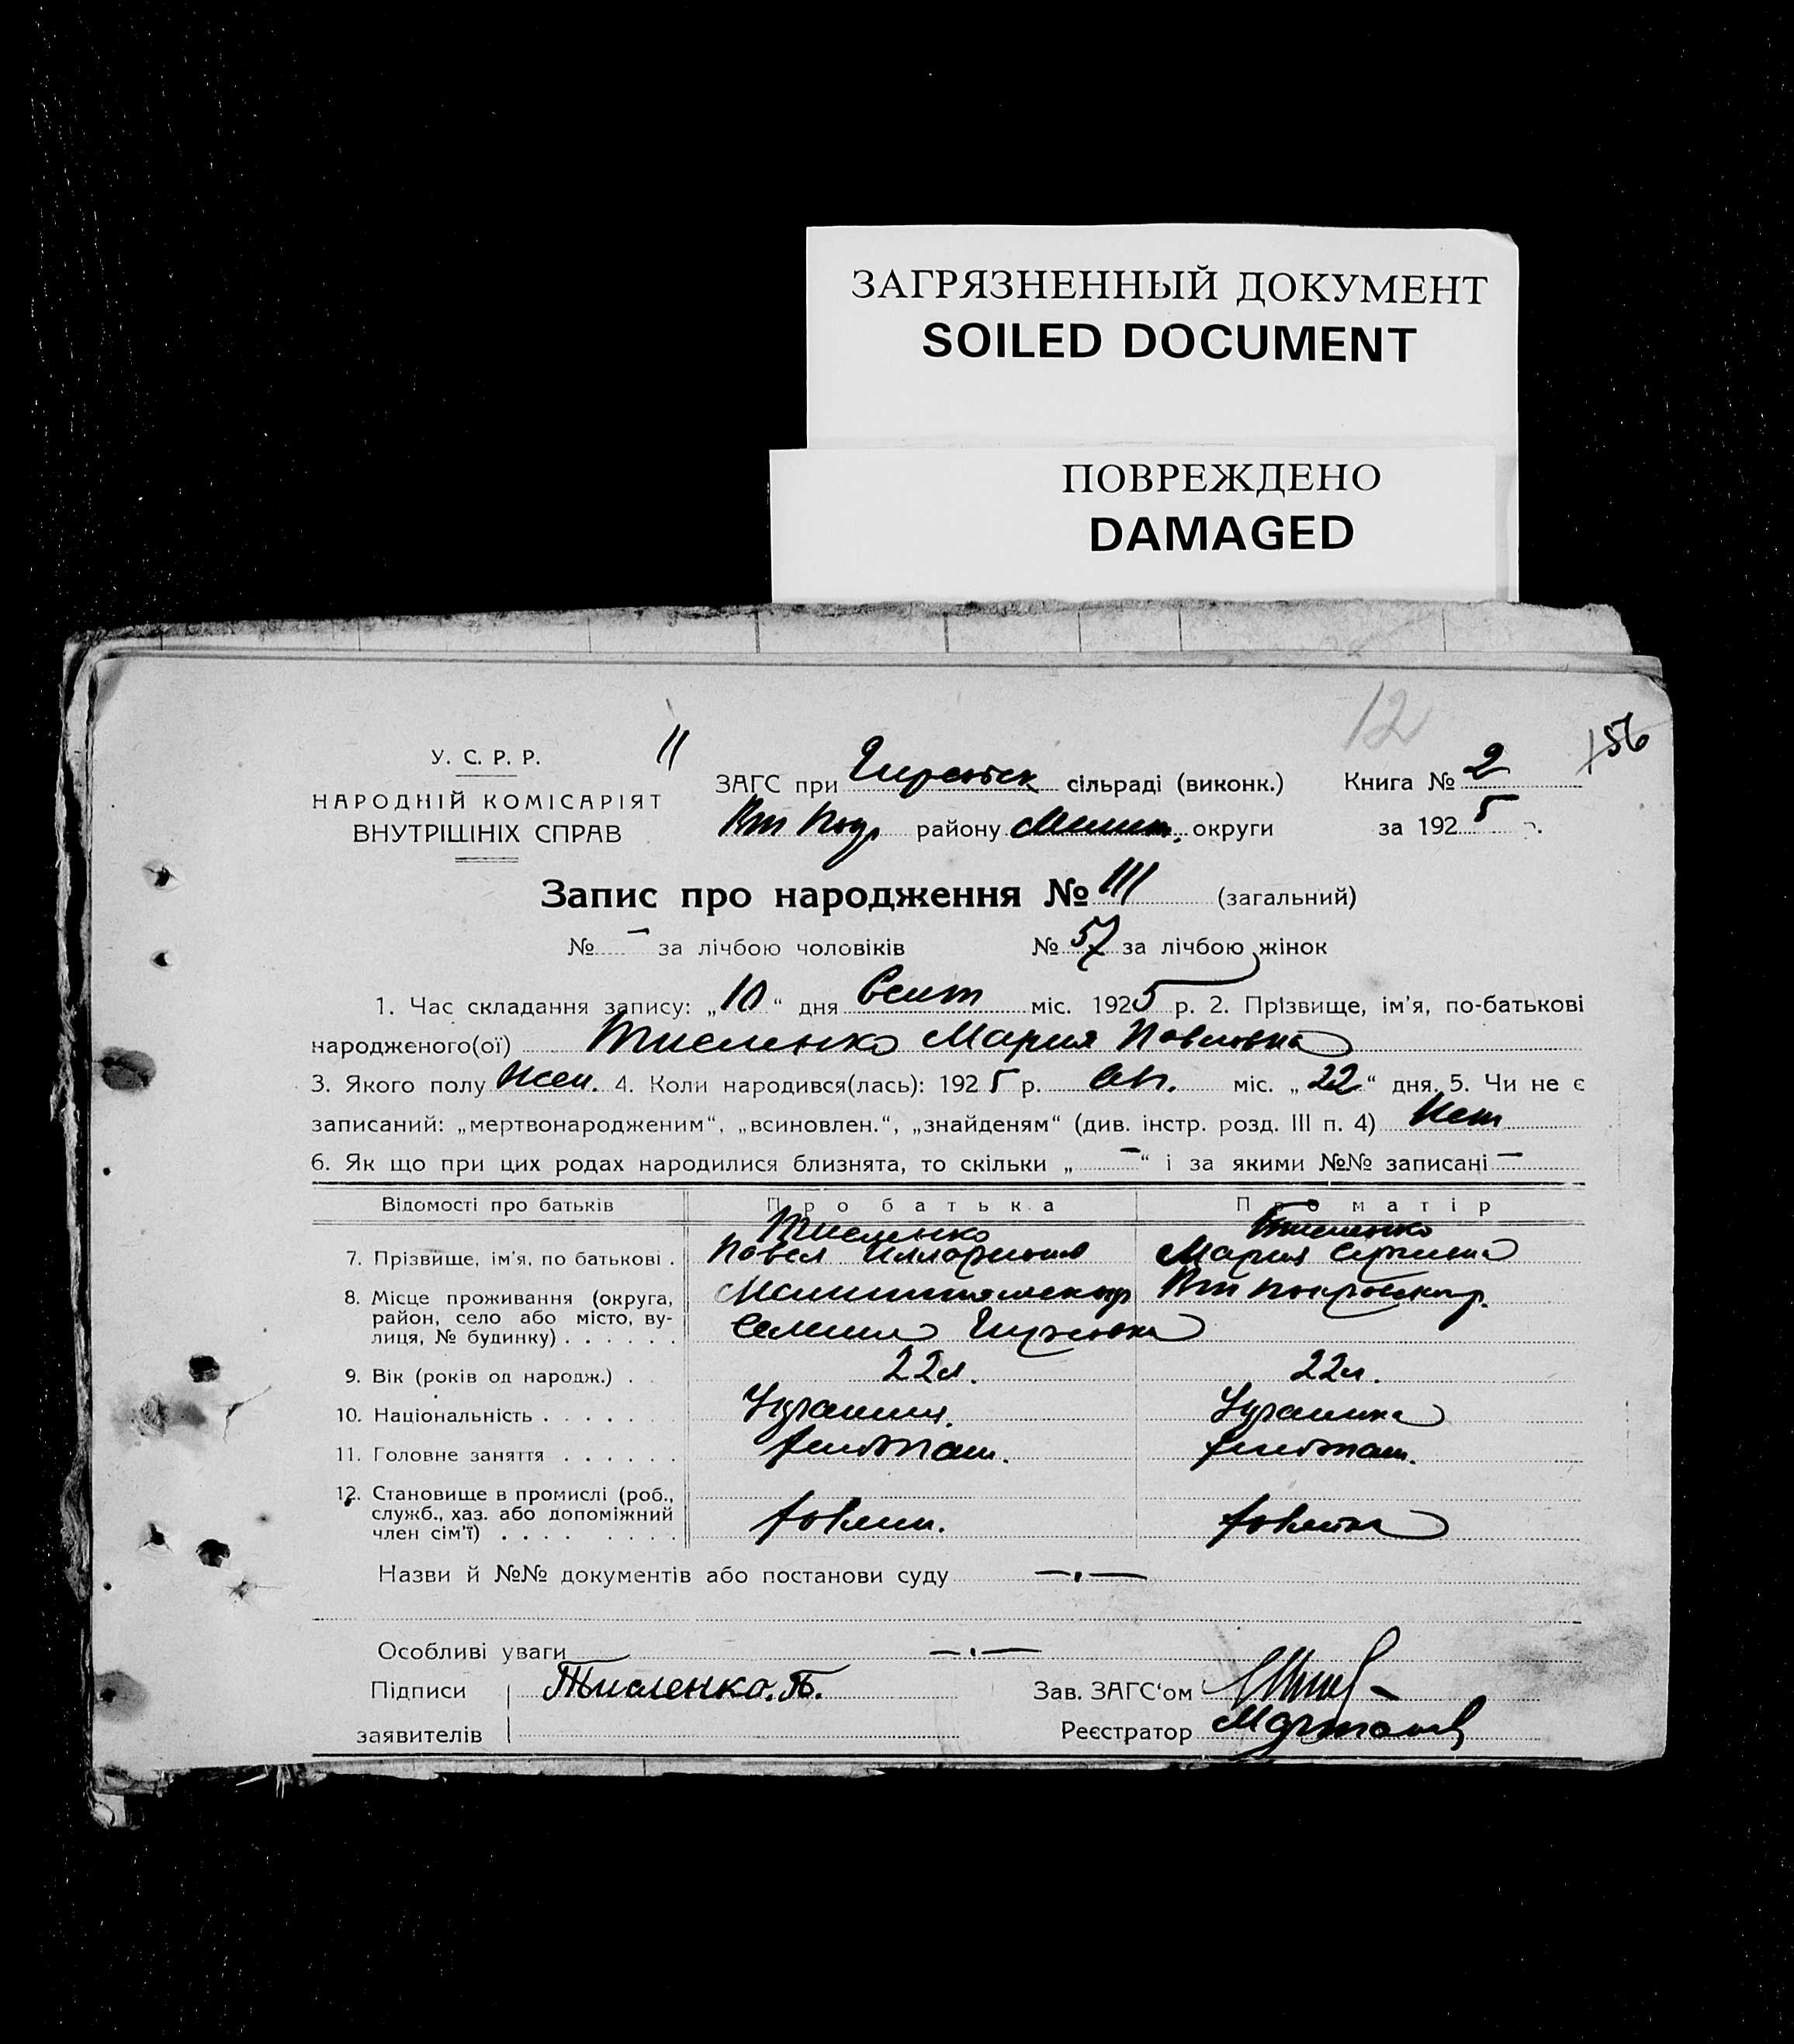 ЗАГРЯЗНЕННЫЙ ДОКУМЕНТ
SOILED DOCUMENT
ПОВРЕЖДЕНО
DAMAGED
12
156
У. С. Р. Р.
НАРОДНІЙ КОМІСАРІЯТ
ВНУТРІШНІХ СПРАВ
11
ЗАГС при сільраді (виконк.) Книга № 2
району округи за 1925 р.
Запис про народження № 111 (загальний)
№ – за лічбою чоловіків № 57 за лічбою жінок
1. Час складання запису: „10“ дня Сент міс. 1925 р. 2. Прізвище, ім'я, по-батькові
народженого(ої) Тисленко Мария Павловна
3. Якого полу Жен. 4. Коли народився(лась): 1925 р. Ав. міс. „22“ дня. 5. Чи не є
записаний: „мертвонародженим“, „всиновлен.“, „знайденям“ (див. інстр. розд. III п. 4) Нет
6. Як що при цих родах народилися близнята, то скільки „–“ і за якими №№ записані –
Відомості про батьків Про батька Про матір
Тисленко Тисленко
7. Прізвище, ім'я, по батькові . Павел Илларионов Мария
8. Місце проживання (округа,
район, село або місто, ву-
лиця, № будинку) . . . . . .
9. Вік (років од народж.) . 22 л. 22 л.
10. Національність . . . . . . Украинец. Украинка
11. Головне заняття . . . . . . хлебопаш. хлебопаш.
12. Становище в промислі (роб.,
служб., хаз. або допоміжний
член сім'ї) . . . . . . . . хозяин. хозяйка
Назви й №№ документів або постанови суду —.—
Особливі уваги —.—
Підписи Тисленко. П. Зав. ЗАГС'ом
заявителів Реєстратор